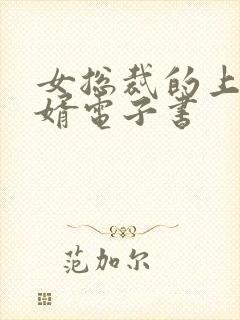 女总裁的上
婿电子书
范加尔